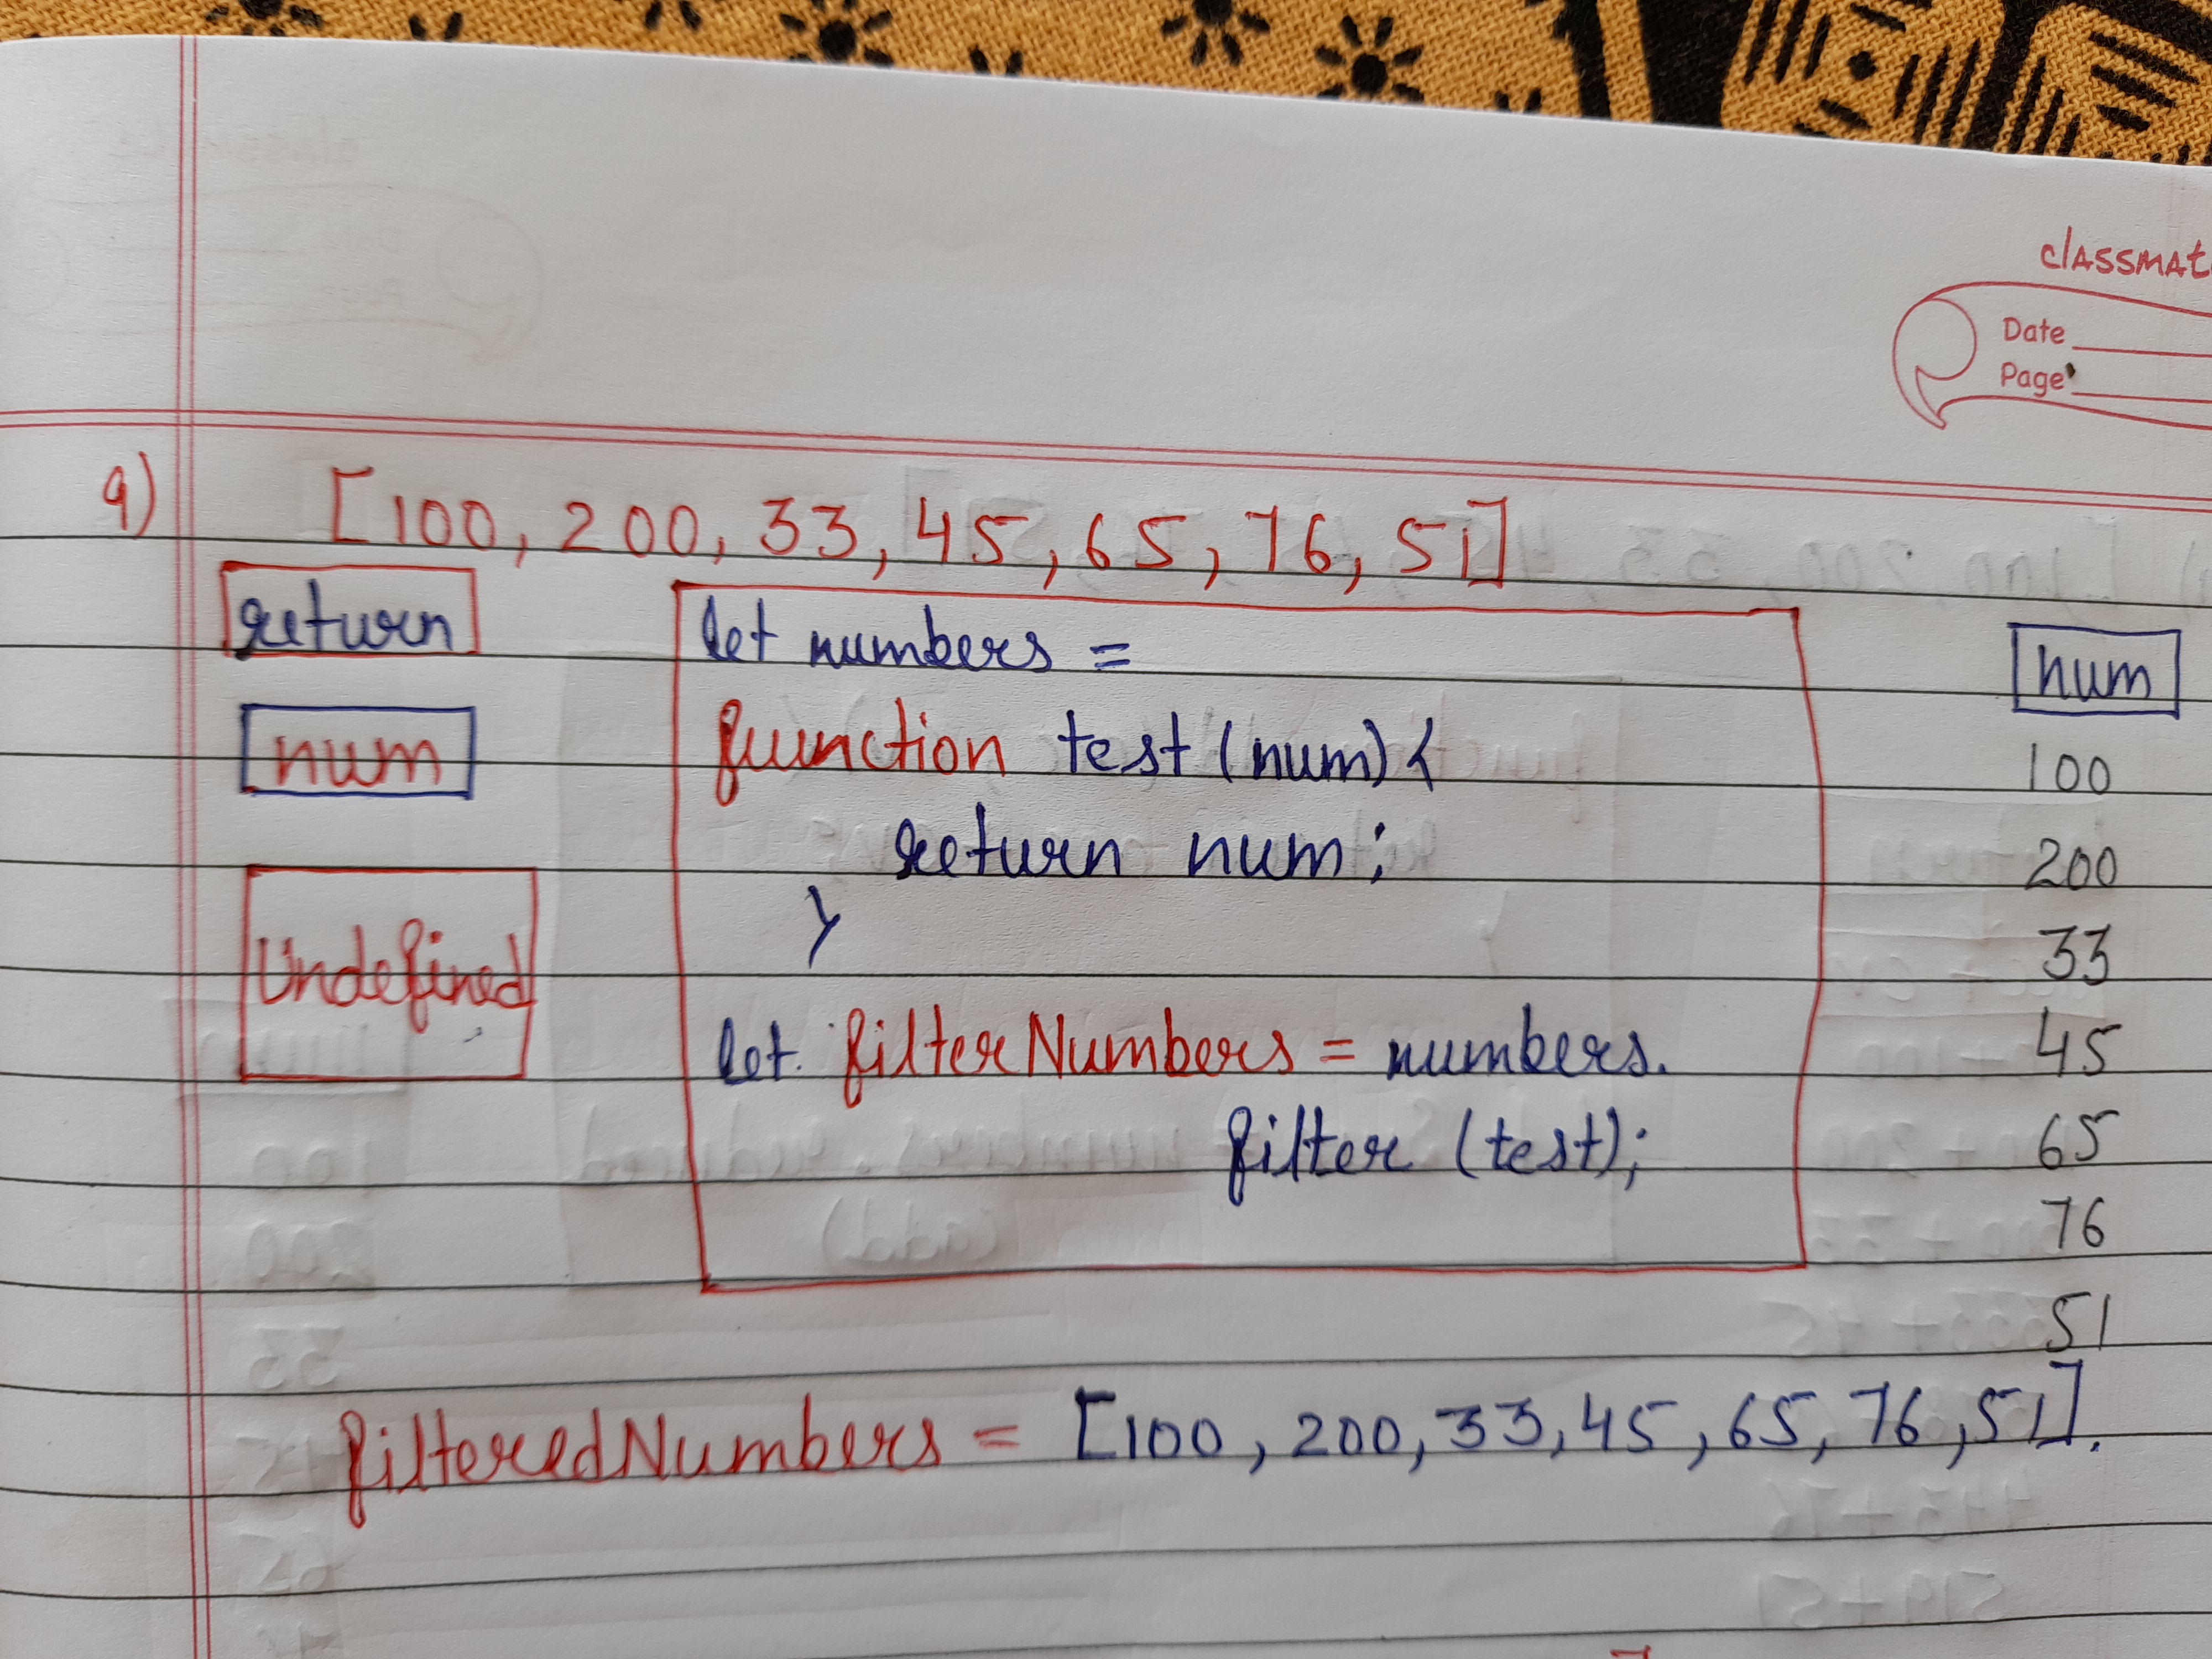 classmat
Date
Page
9)
[100, 200, 33, 45, 65, 76, 51]
return
num
Undefined
let numbers =
function test (num) {
return num;
}
let filterNumbers = numbers.
filter (test);
num
100
200
33
45
65
76
51
filteredNumbers = [100, 200, 33, 45, 65, 76, 51].